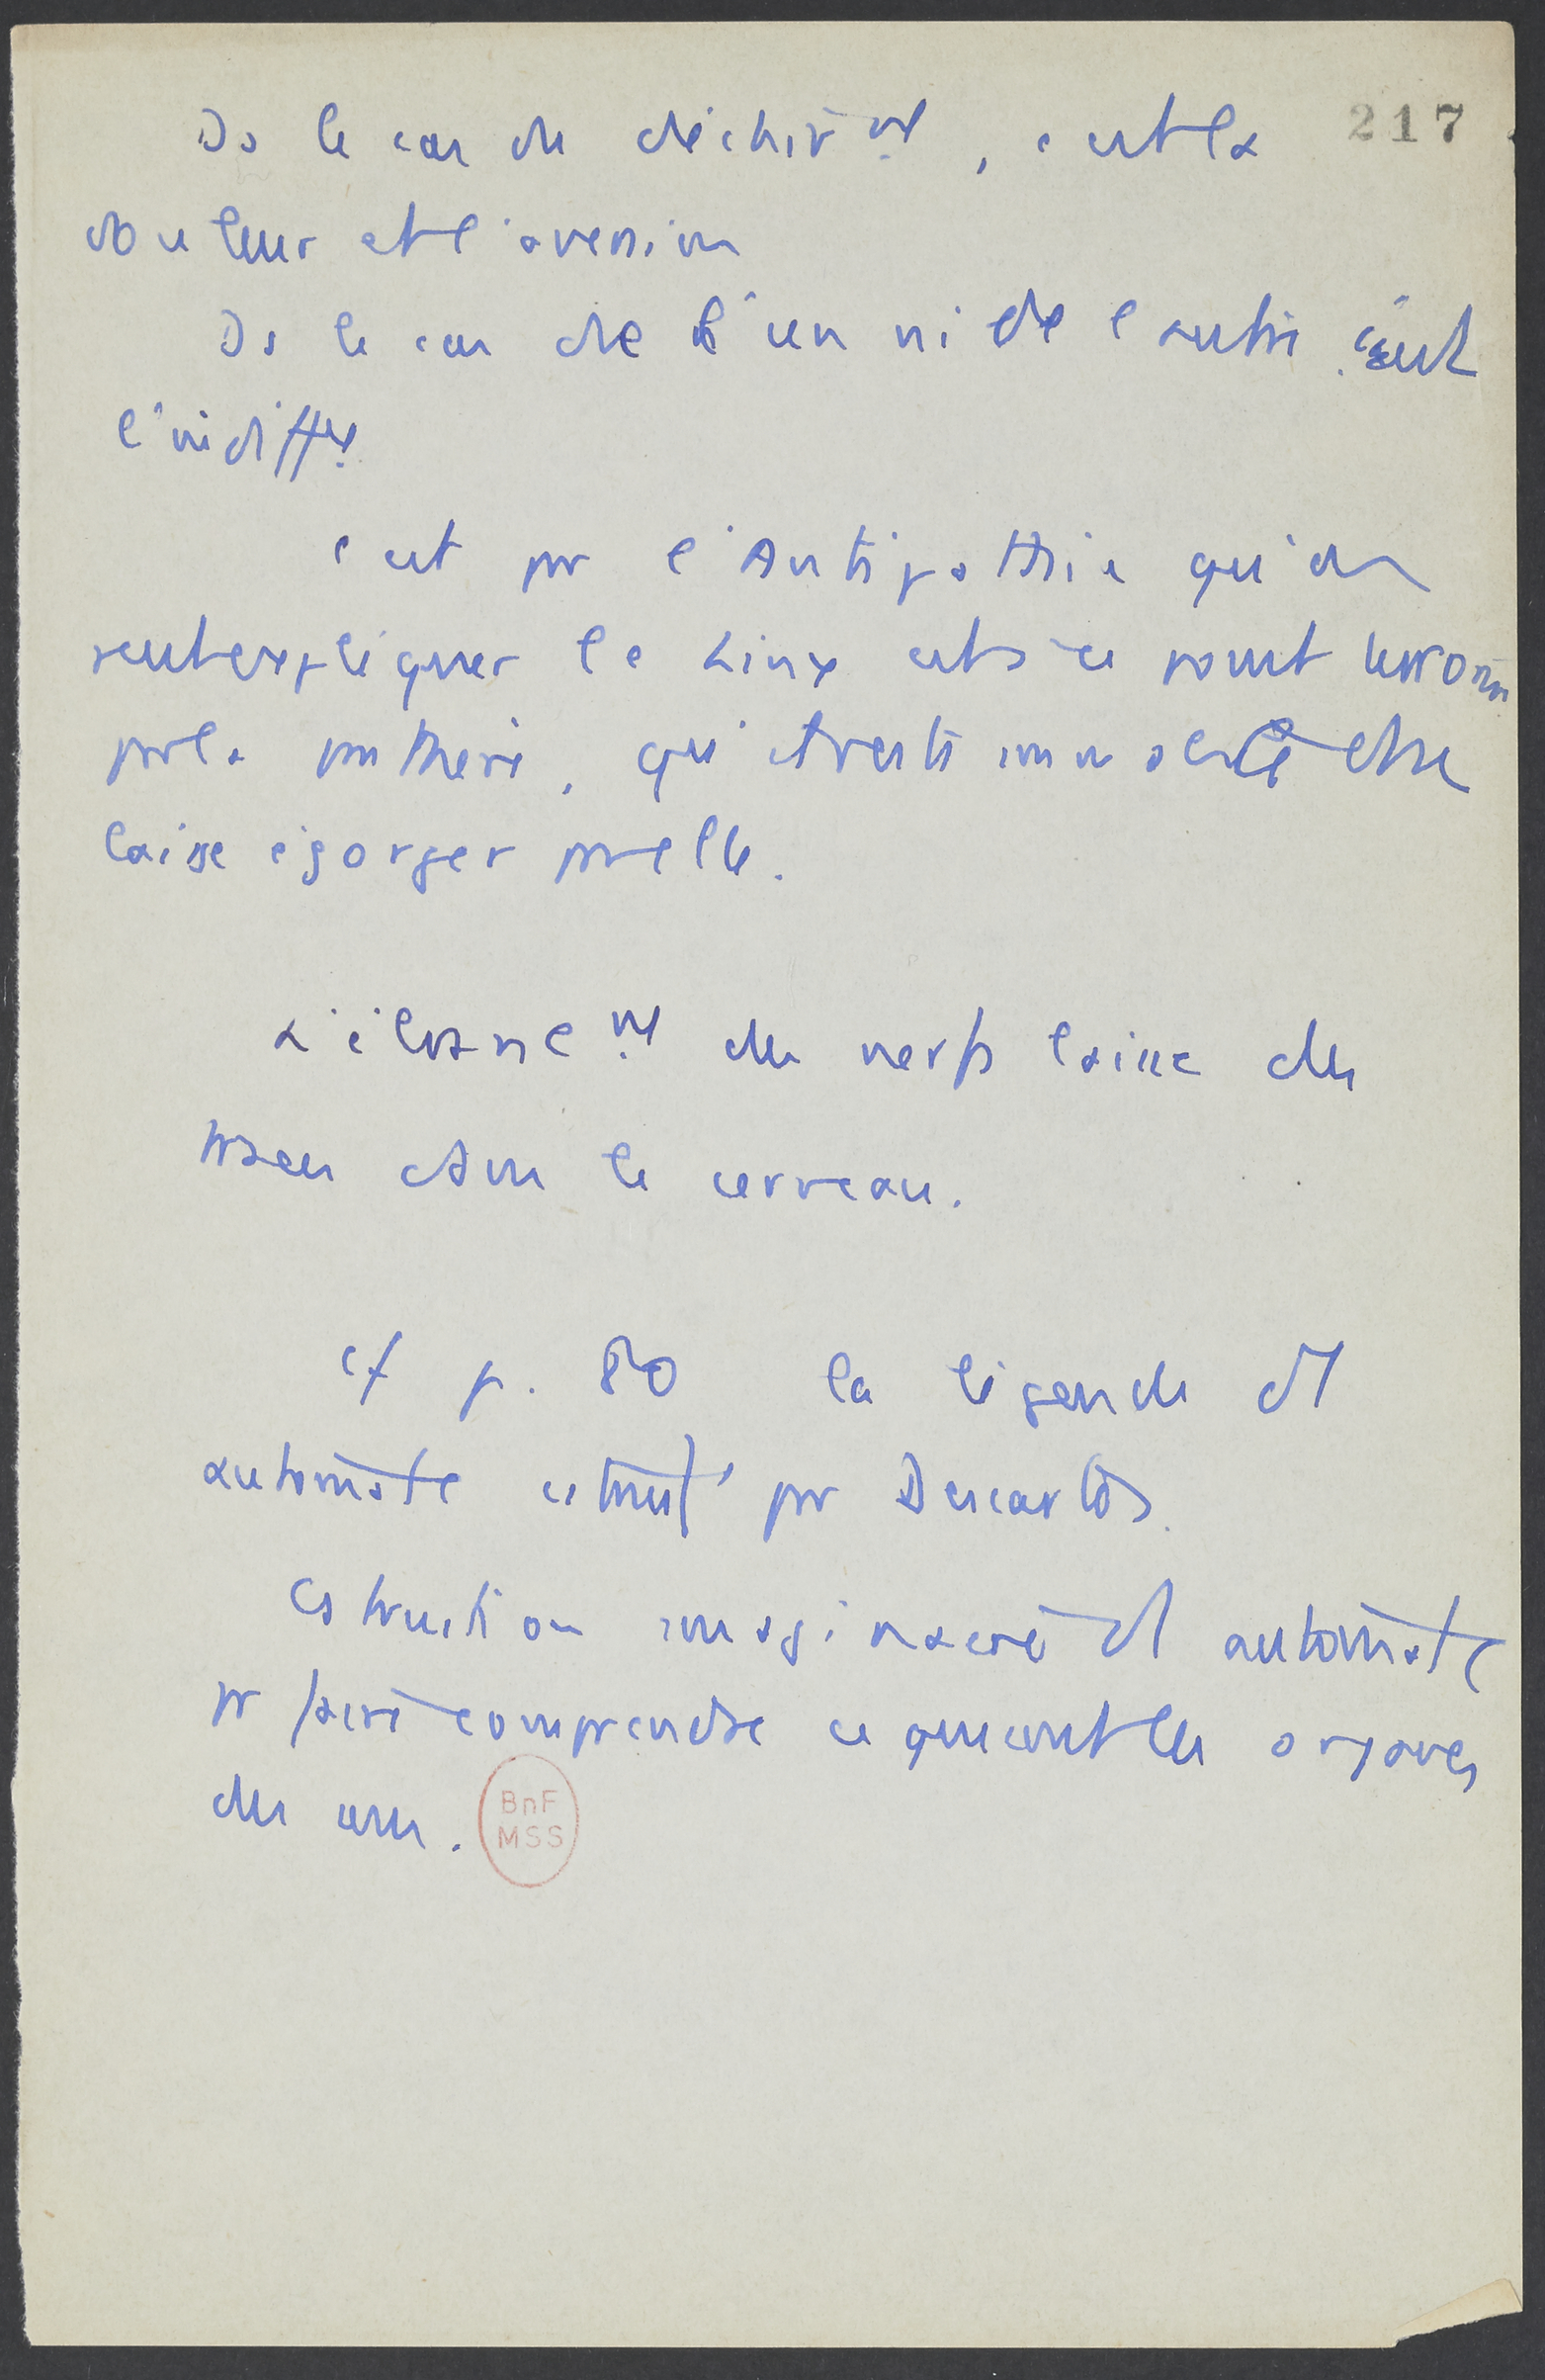 217
Ds le cas du déchirmt, c'est la
douleur et l'aversion
Ds le cas de l'un ni de l'autre, c'est
l'indiffce
C'est par l'Antipathie qu'on
peut expliquer le
par la panthère, qu'
laisse égorger par elle.
L'ébranlemt des nerfs laisse des
traces dans le cerveau.
cf p. 80 la légende de l'
automate cstruit par Descartes.
Cstruction imaginaire de l'automate
pr faire comprendre ce que sont les organes
des sens.
BnF
MSS